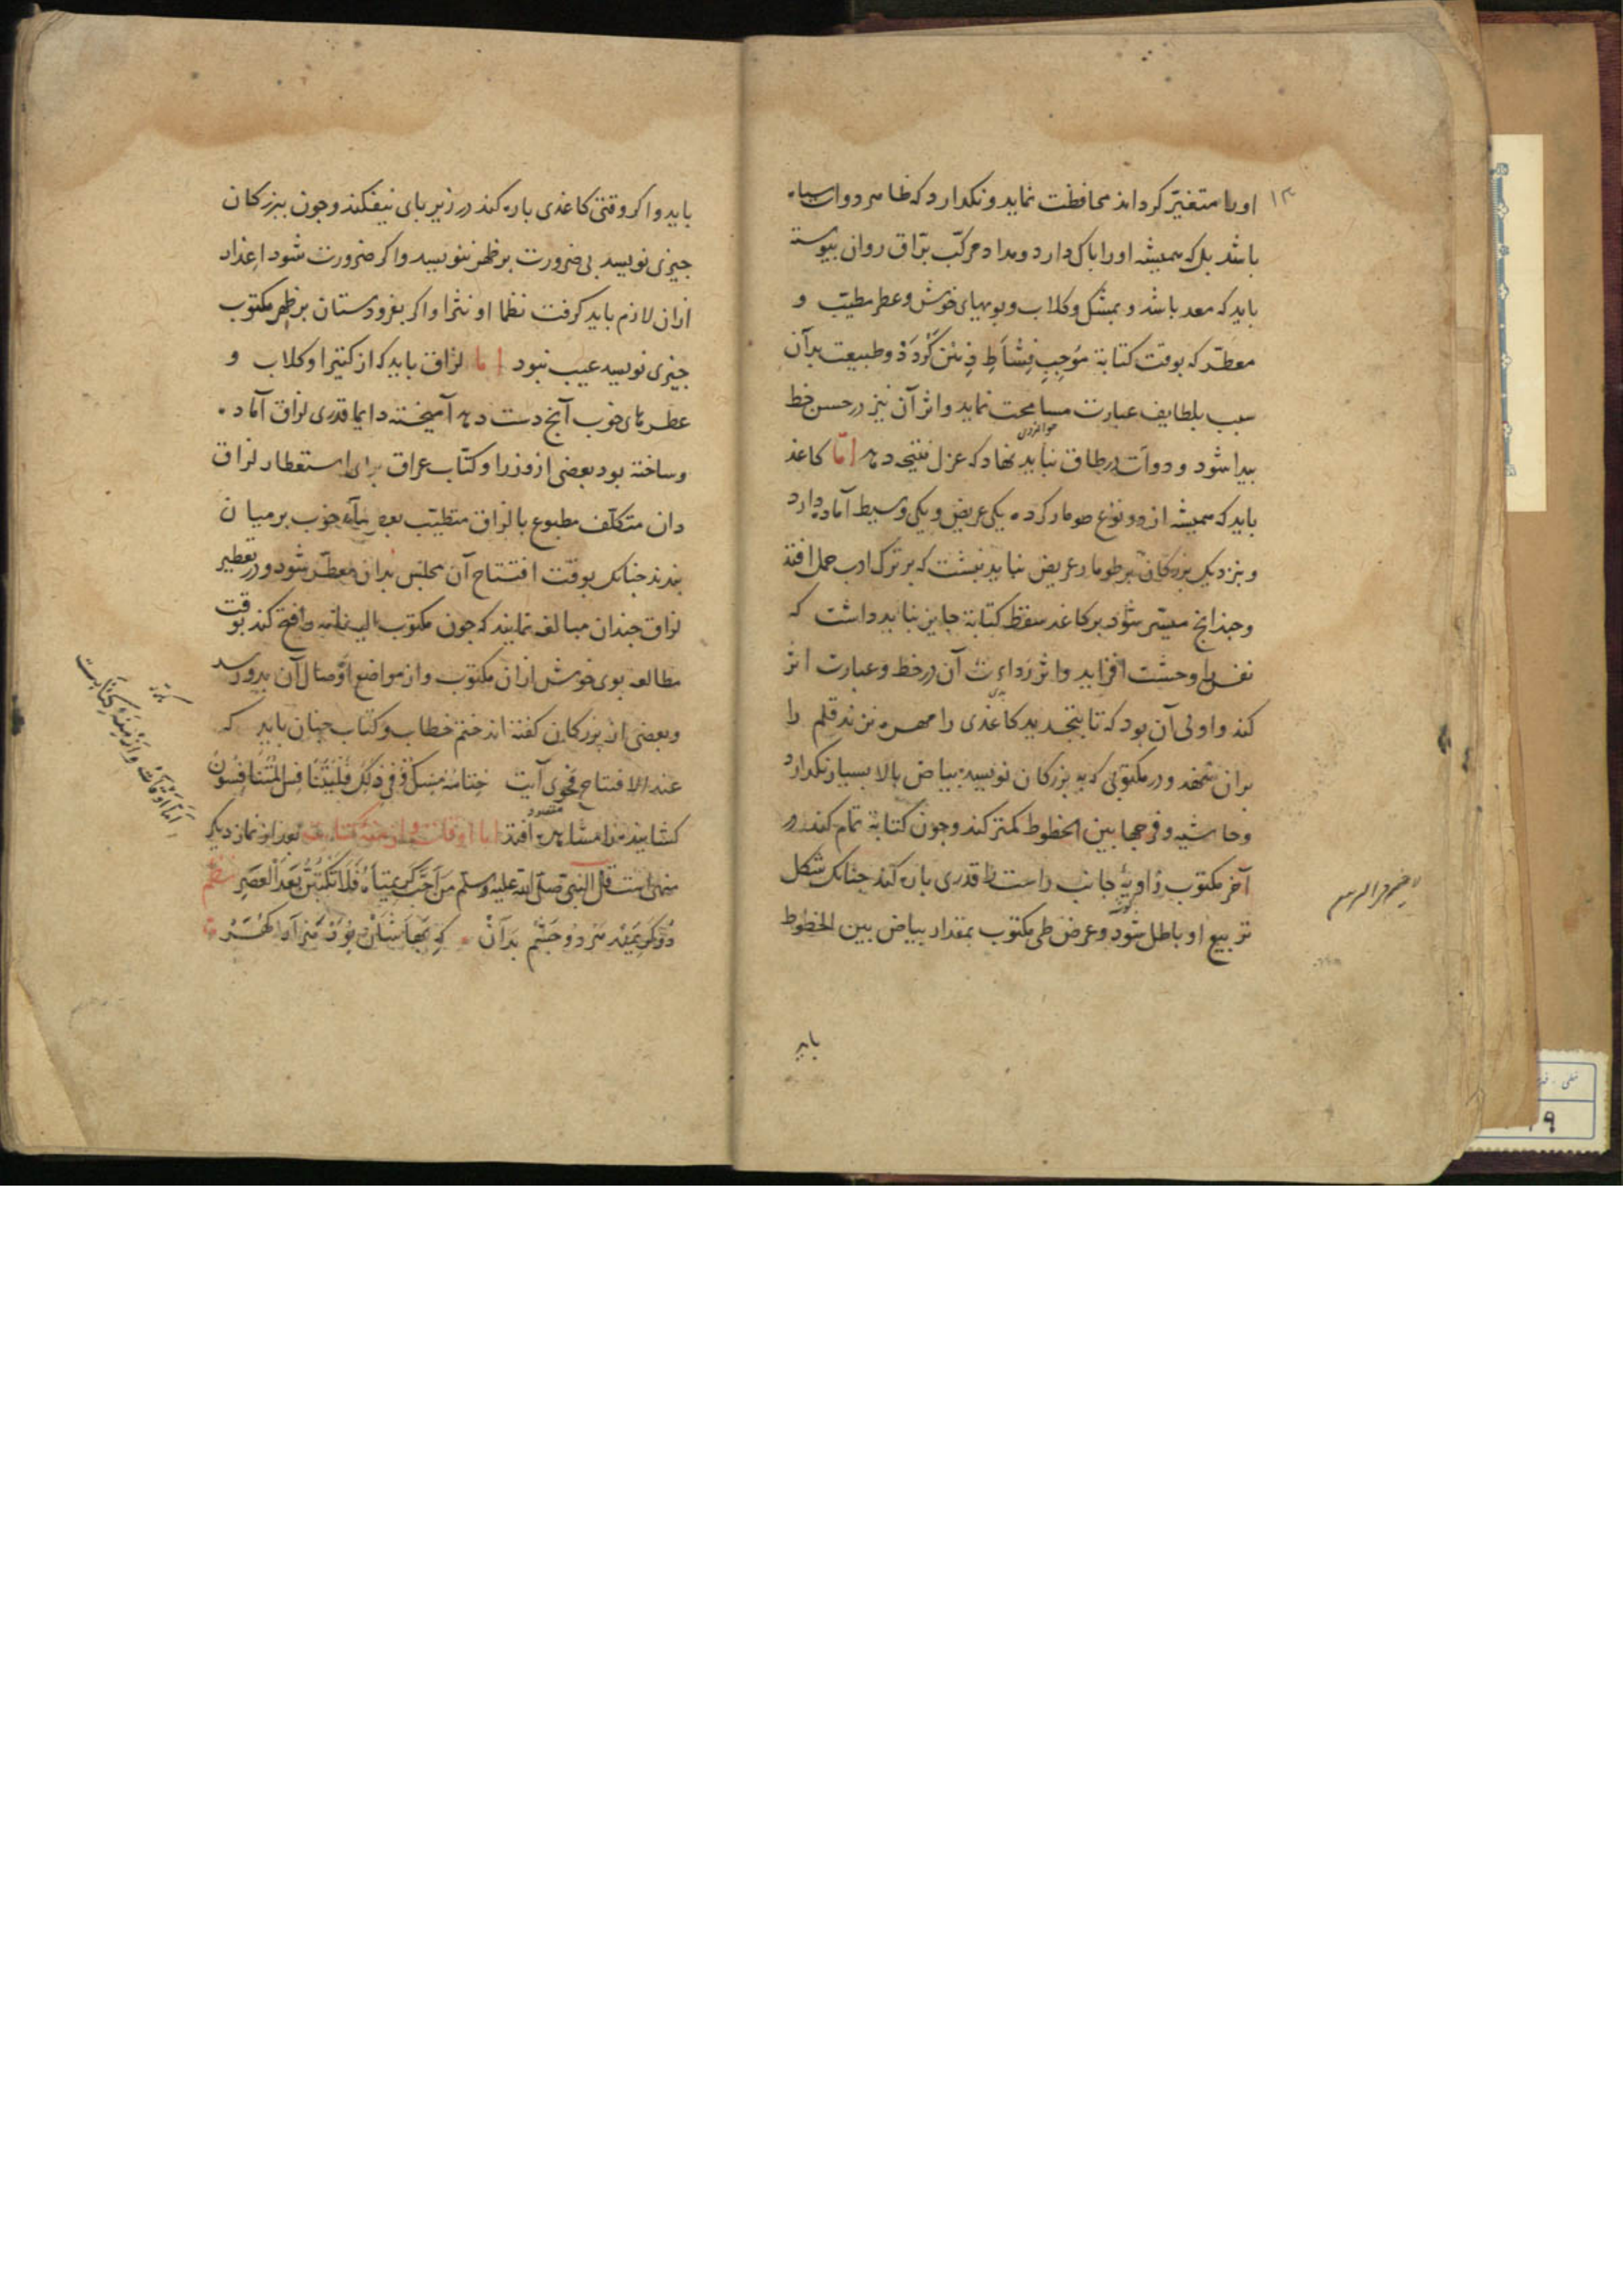 ۱۳
او را متغیّر کرداند محافظت نماید و نکدارد که ظاهر دوات سیاه
باشد بل که همیشه او را پاک دارد و مداد مرکّب برّاق روان پیوسته
باید که معد باشد و بمشک و کلاب و بویهای خوش و عطر مطیّب و
معطّر که بوقت کتابة مُوجِبِ نِشْاَطِ ذِهْن کَرْدَدْ و طبیعت بدآن
سبب بلطایف عبارت مسامحت نماید و اثر آن نیز در حسن خط
پیدا شود و دوات در طاق نباید نهاد که عزل نتیجه دهد امّا کاغذ
باید که همیشه از دو نوع طومار کرده یکی عریض و یکی وسیط آماده دارد
و بنزدیک بزرکان بر طومار عریض نباید نبشت که بر ترک ادب حمل افتد
و چندانج میسّر شود بر کاغذ سقط کتابة جایز نباید داشت که
نفس را وحشت افزاید و اثر رداءت آن در خط و عبارت اثر
کند و اولی آن بود که تا بتجدید کاغذی را مهره نزند قلم را
بران ننهد و در مکتوبی که به بزرکان نویسد بیاض بالا بسیار نکدارد
و حاشیه و فرجها بین الخطوط کمتر کند و چون کتابة تمام کند در
آخر مکتوب زاویهٔ جانب راست را قدری پاره کند چنانک شکل
تربیع او باطل شود و عرض طی مکتوب بمقدار بیاض بین الخطوط
باید
باید و اکر وقتی کاغذی پاره کند در زیر پای نیفکند و چون ببزرکان
چیزی نویسد بی ضرورت بر ظهر ننویسد و اکر ضرورت شود اعذار
ازان لازم باید کرفت نظما او نثرا و اکر بفرودستان بر ظهر مکتوب
چیزی نویسد عیب نبود اما لزاق باید که از کتیرا و کلاب و
عطرهای خوب آنج دست دهد آمیخته دایما قدری لزاق آماده
و ساخته بود بعضی از وزرا و کتّاب عراق برای استعطار لزاق
دان متکلّف مطبوع با لزاق متطیّب خوب بر میان
بندند چنانک بوقت افتتاح آن مجلس بدان معطّر شود و در تعطیر
لزاق چندان مبالغه نمایند که چون مکتوب الیه نامه فتح کند بوقت
مطالعه بوی خوش ازان مکتوب و از مواضع اوصال آن بدو رسد
و بعضی از بزرکان کفته اند ختم خطاب و کتاب چنان باید که
عند الافتتاح فحوی آیت خِتَامُهُ مِسْكٌ وَفِي ذَلِكَ فَلْيَتَنَافَسِ الْمُتَنَافِسُونَ
کشایند را مشاهده افتد اما اوقات و ازمنه کتابت بعد از نماز دیکر
منهی است قال النبی صلی الله علیه و سلم مَن اَحَبَّ کَرِیمَتَیْهِ فَلَا تَکْتُبَنَّ بَعْدَ الْعَصْرِ نظم
دُو کَرِیمَنْد مَرْد دو چَشْم بِدَآنْ که
اَمَّا اَوْقَات وَ اَزْمِنَهٔ کِتَابَت